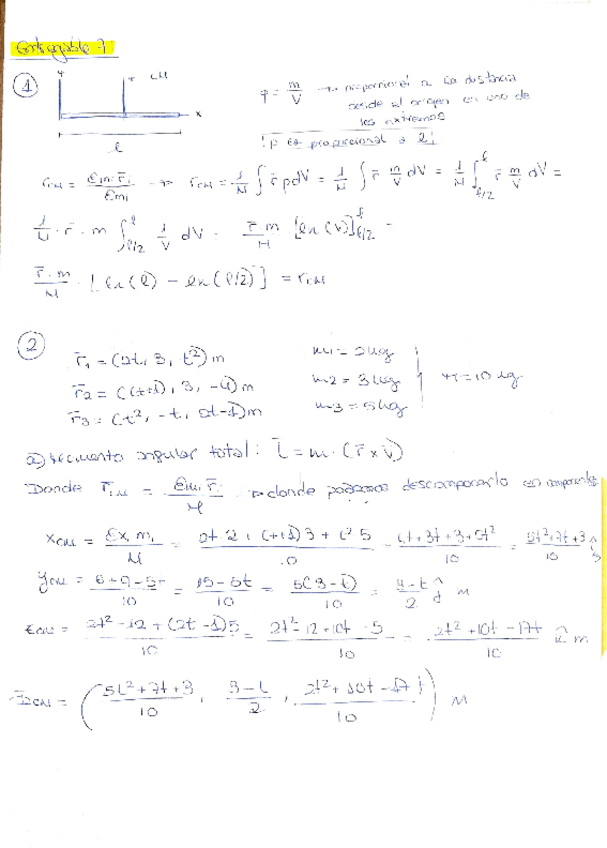 Entregable 1
① CM x
ρ = m/V → proporcional a la distancia
desde el origen en uno de
los extremos
l ¡ρ es proporcional a l!
r_CM = Σmi·r̄i / Σmi → r_CM = 1/M ∫ r̄ρdV = 1/M ∫ r̄ m/V dV = 1/M ∫_{l/2}^{l} r̄ m/V dV =
1/M · r̄ · m ∫_{l/2}^{l} 1/V dV = r̄·m/M [ln(V)]_{l/2}^{l} =
r̄·m/M · [ln(l) - ln(l/2)] = r_CM
②
r̄1 = (2t, 3, t²) m m1 = 2kg
r̄2 = ((t+1), 3, -4) m m2 = 3kg M = 10 kg
r̄3 = (t², -t, 2t-1) m m3 = 5kg
a) Momento angular total: L̄ = m·(r̄ x v̄)
Donde r̄_CM = Σmi r̄i / M → donde podemos descomponerlo en componentes
x_CM = Σxi mi / M = 2t·2 + (t+1)3 + t²5 / 10 = 4t+3t+3+5t² / 10 = 5t²+7t+3 / 10
y_CM = 6+9-5t / 10 = 15-5t / 10 = 5(3-t) / 10 = 3-t / 2 ĵ m
z_CM = 2t²-12+(2t-1)5 / 10 = 2t²-12+10t-5 / 10 = 2t²+10t-17 / 10 k̂ m
r̄_CM = ( 5t²+7t+3 / 10 , 3-t / 2 , 2t²+10t-17 / 10 ) m